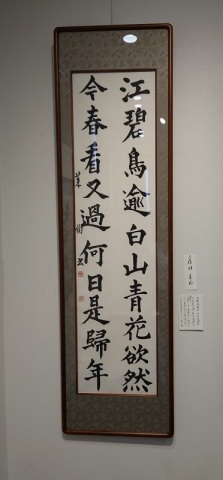 江碧鳥逾白山青花欲然
今春看又過何日是歸年